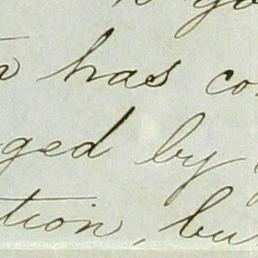 has co
ged by
tion, bu